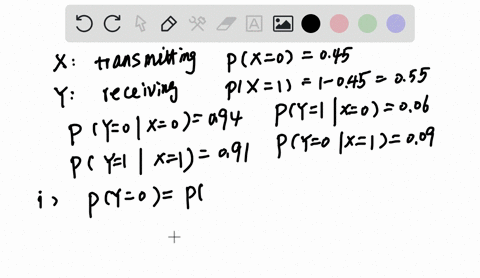 X: transmitting P(X=0) = 0.45
Y: receiving P(X=1) = 1-0.45 = 0.55
P(Y=0 | X=0) = 0.94 P(Y=1 | X=0) = 0.06
P(Y=1 | X=1) = 0.91 P(Y=0 | X=1) = 0.09
i> P(Y=0) = P(